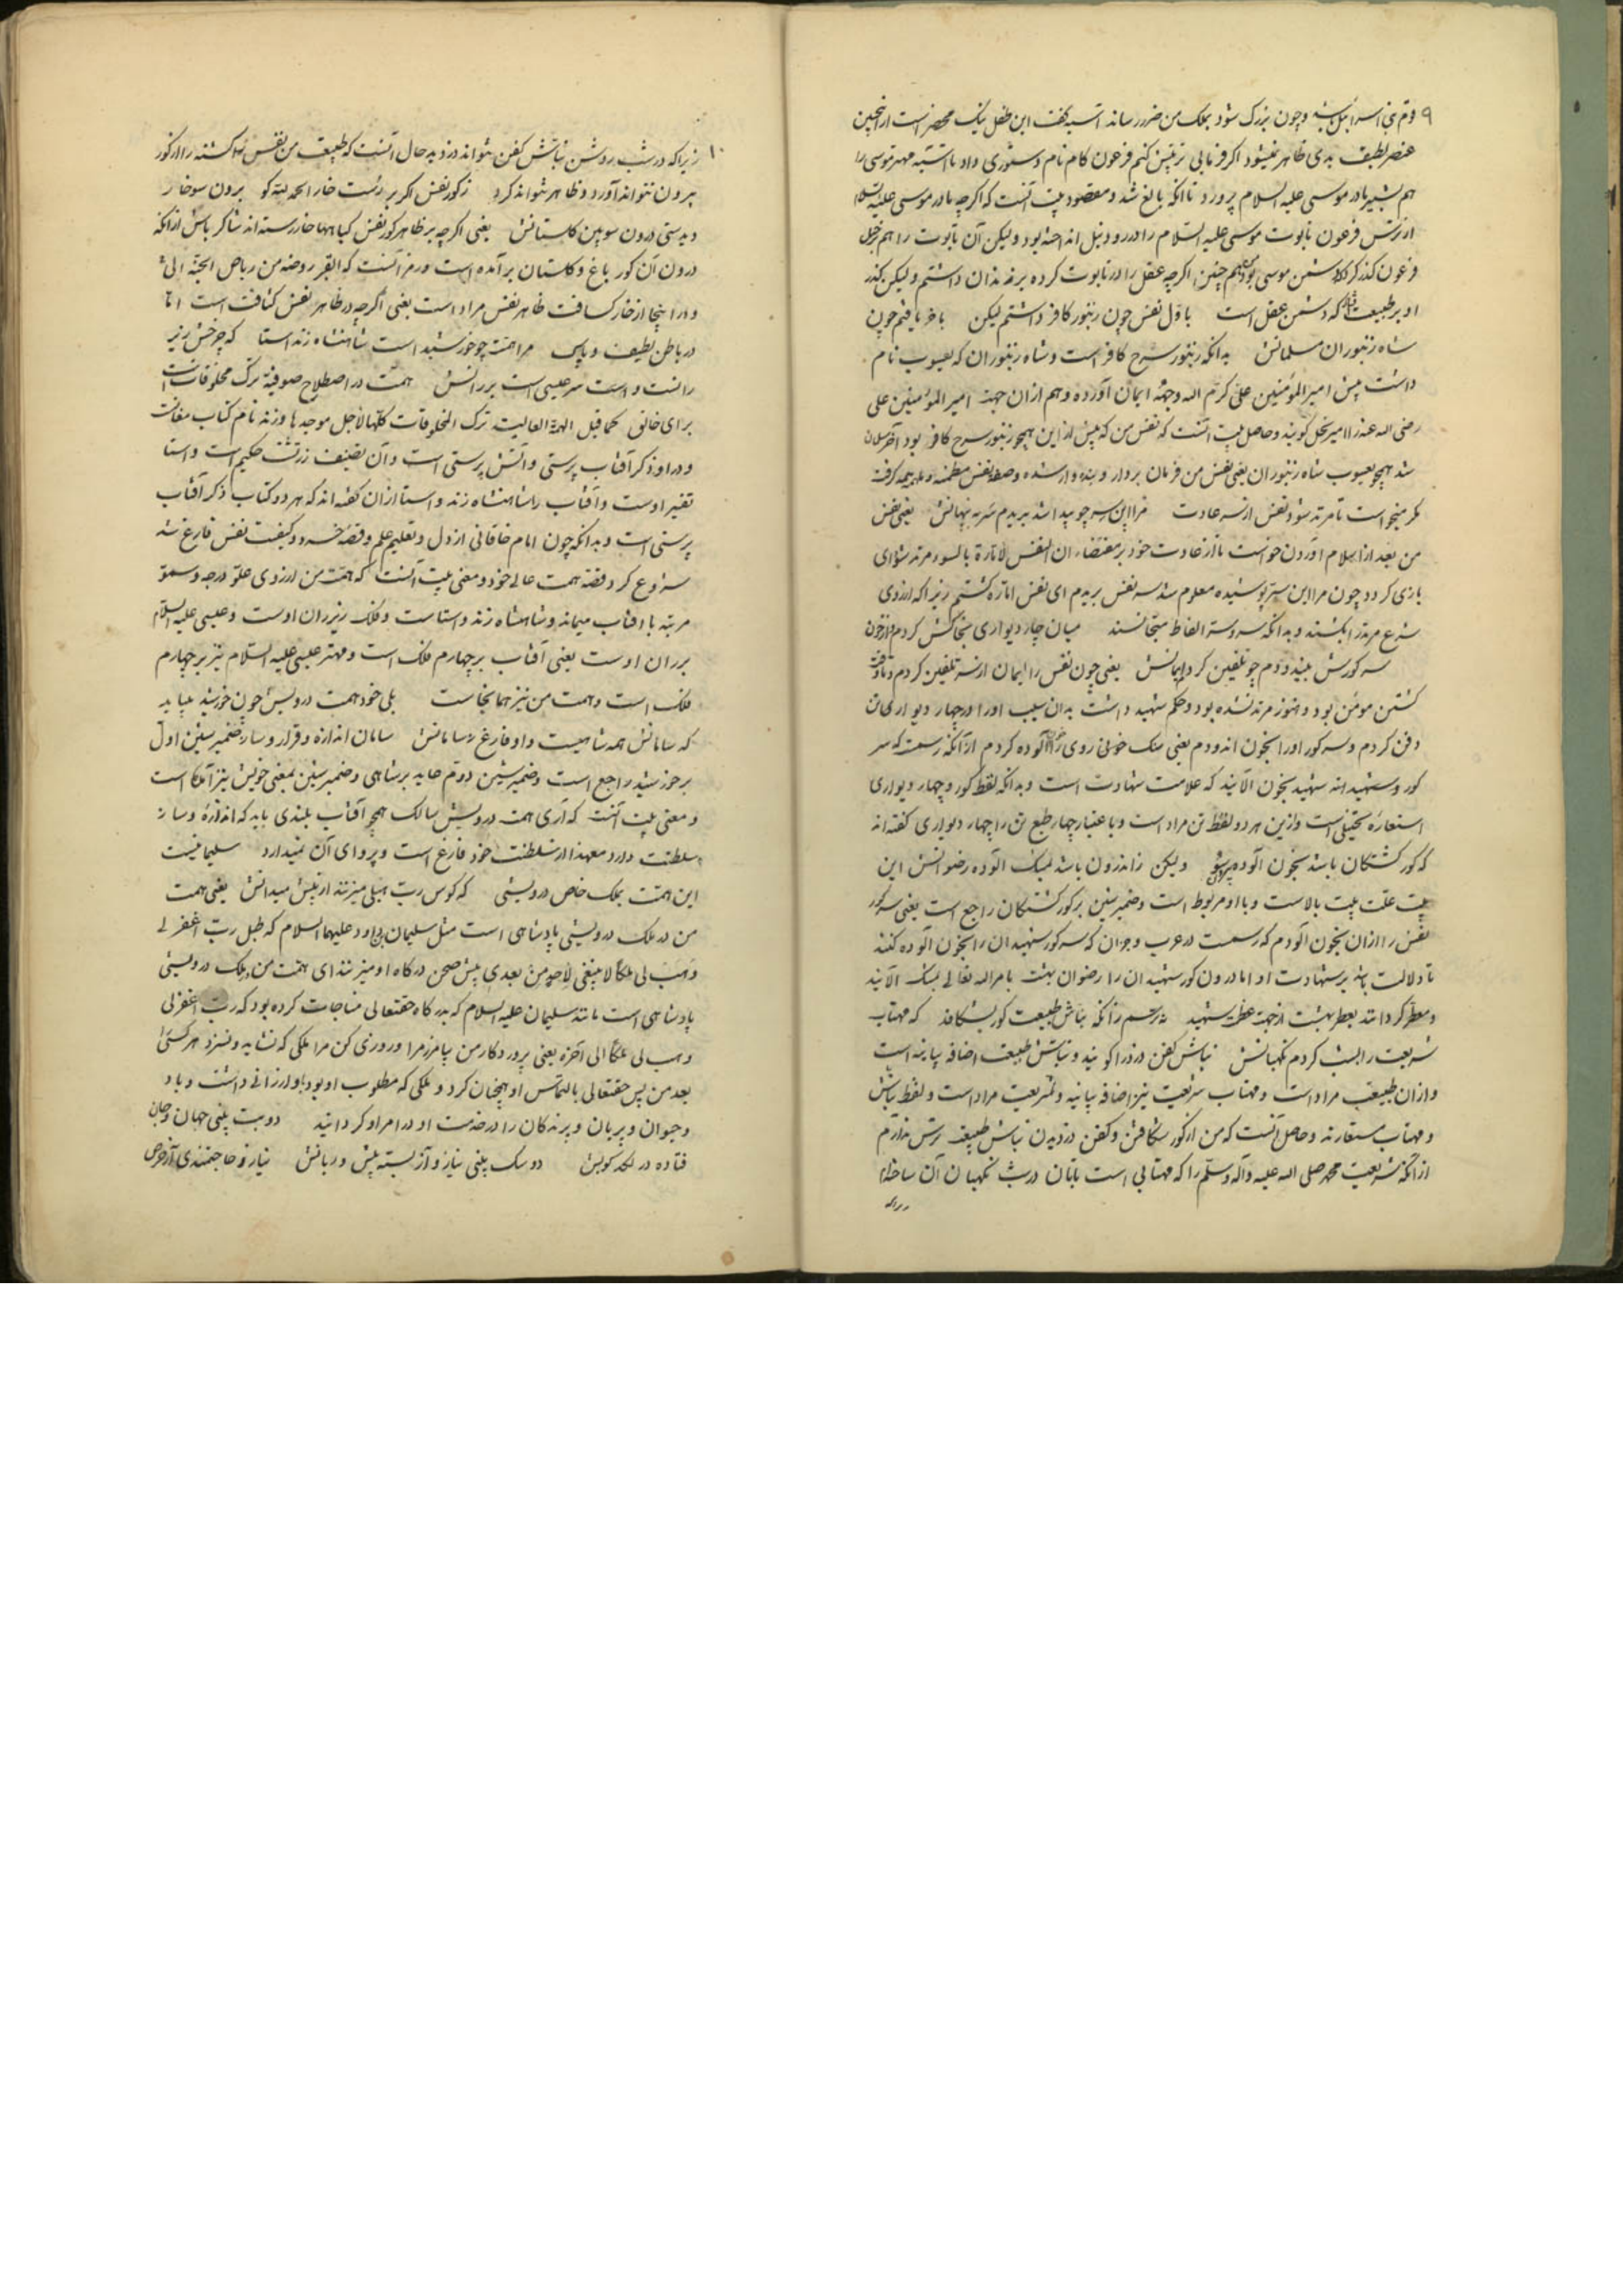 ۹ وچون بزرگ شود بملک من ضرر رساند آسیه گفت این طفل نیک محضر است از انچنین
عنصر لطیف بدی ظاهر نمیشود اکر فرمایی تربیتش کنم فرعون کام نام دستوری داد تا آسیه مهتر موسی را
هم بشیر مادر موسی علیه السلام پرورد تا انکه بالغ شد و مقصود بیت آنست که اکرچه مادر موسی علیه السلام
از ترس فرعون تابوت موسی علیه السلام را در رود نیل انداخته بود ولیکن آن تابوت را هم بر
فرعون گذر کرد که دشمن موسی بود همچنین اکرچه عقل را در تابوت کرده برخد ندان داشتم ولیکن گذر
او بر طبیعت که دشمن عقل است باول نفس چون زنبور کافر داشتم لیکن باخر یافتم چون
شاه زنبوران مسلمانش بدانکه زنبور سرخ کافر است و شاه زنبوران که یعسوب نام
داشت پیش امیر المؤمنین علی کرم الله وجهه ایمان آورده و هم ازان جهت امیر المؤمنین علی
رضی الله عنه را امیر نحل گویند و حاصل بیت آنست که نفس من که پیش از این همچو زنبور سرخ کافر بود آخر مسلمان
شد همچو یعسوب شاه زنبوران یعنی نفس من فرمان بردار و بنده وار شده و صفت نفس مطمئنه گرفت
مگر میخواست تا مرتد شود نفس از سر عادت مرا این سر چو پیدا شد بریدم سر به پنهانش یعنی نفس
من بعد از اسلام آوردن خواست تا از عادت خود بر مقتضاء ان النفس لامارة بالسوء مرتد شود ای
بازی گردد چون مرا این سر پوشیده معلوم شد سر نفس بریدم ای نفس اماره کشتم زیرا که از روی
شرع مرتد را بکشند و بدانکه سر و سر الفاظ متجانسند میان چار دیواری بخاکش کردم و از خون
سر گورش بیندودم چو تلقین کردم ایمانش یعنی چون نفس را ایمان از سر تلقین کردم و تا وقت
کشتن مومن بود و هنوز مرتد نشده بود و حکم شهید داشت بدان سبب او را در چهار دیواری تن
دفن کردم و سر گور او را بخون اندودم یعنی سنگ خونی روی آلوده کردم از آنکه رسمست که سر
گور شهیدانه شهید بخون آلایند که علامت شهادت است و بدانکه لفظ گور و چهار دیواری
استعاره تخییلی است و ازین هر دو لفظ تن مراد است و باعتبار چهار طبع تن را چهار دیواری گفته اند
که گور کشتگان باشد بخون آلوده بیرون سو ولیکن ز اندرون باشد بمشک آلوده رضوانش این
بیت علت بیت بالاست و با او مربوط است و ضمیر شین بر گور کشتگان راجع است یعنی سر گور
نفس را ازان بخون آلودم که رسمست در عرب و جز ان که سر گور شهیدان را بخون آلوده کنند
تا دلالت باشد بر شهادت او اما درون گور شهیدان را رضوان بهشت بامر الله تعالی بمشک آلاید
و معطر گردانند بعطر بهشت از جهت شهید نترسم زانکه نباش طبیعت گور بشکافد که مهتاب
شریعت را بشب کردم نگهبانش نباش کفن دزد را گویند و نباش طبیعت اضافه بیانیه است
و ازان طبیعت مراد است و مهتاب شریعت نیز اضافه بیانیه و شریعت مراد است و لفظ نباش
و مهتاب مستعارند و حاصل آنست که من از گور شکافتن و کفن دزدیدن نباش طبیعت ترس ندارم
از آنکه شریعت محمد صلی الله علیه وآله وسلم را که مهتابی است تابان در شب نگهبان آن ساخته ام
۱۰ زیرا که در شب روشن نباش کفن نتواند دزدید حال آنست که طبیعت من نفس کشته را از گور
بیرون نتواند آورد و ظاهر نتواند کرد ز گور نفس اکر بر رست خار الحمد لله گو برون سو خار
دیدستی درون سو بین گلستانش یعنی اکرچه بر ظاهر گور نفس گیاهها خار رسته اند شاکر باش از انکه
درون آن گور باغ و گلستان بر آمده است و رمز آنست که القبر روضة من ریاض الجنة الی
و در اینجا از خار کسافت ظاهر نفس مراد است یعنی اکرچه در ظاهر نفس کثافت است اما
در باطن لطیف مرا همت چو خورشید است شاهنشاه زند استا که چرخش زیر
رانست و است سر عیسی است بر رانش همت در اصطلاح صوفیه ترک مخلوقات است
برای خالق کما قیل الهمة العالیت ترک المخلوقات کلها لاجل موجدها و زند نام کتاب مغانست
و در او ذکر آفتاب پرستی و آتش پرستی است و آن تصنیف زرتشت حکیم است و استا
تفسیر اوست و آفتاب را شاهنشاه زند و استا ازان گفته اند که هر دو کتاب ذکر آفتاب
پرستی است و بدانکه چون امام خاقانی از دل و تعلیم علم و قصه خسرو و کیفیت نفس فارغ شد
شروع کرد قصه همت عالی خود و معنی بیت آنست که همت من از روی علو درجه و سمو
مرتبه با آفتاب میماند و شاهنشاه زند و استاست و فلک زیر ران اوست و عیسی علیه السلام
بر ران اوست یعنی آفتاب بر چهارم فلک است و مهتر عیسی علیه السلام نیز بر چهارم
فلک است و همت من نیز همانجاست بلی خود همت درویش چون خورشید میباید
که سامانش همه شاهیست و او فارغ ز سامانش سامان اندازه و قرار و ساز ضمیر شین اول
بر خورشید راجع است و ضمیر شین دوم عاید بر شاهی و ضمیر شین بمعنی خویش نیز آمده است
و معنی بیت آنست که آری همت درویش سالک همچو آفتاب بلندی باید که اندازه و ساز
سلطنت دارد معهذا از سلطنت خود فارغ است و پروای آن نمیدارد سلیمانیست
این همت بملک خاص درویشی که کوس رب هب لی میزنند از پیش میدانش یعنی همت
من در ملک درویشی پادشاهی است مثل سلیمان بن داود علیهما السلام که طبل رب اغفر لی
وهب لی ملکا لا ینبغی لاحد من بعدی پیش صحن درگاه او میزنند ای همت من بملک درویشی
پادشاهی است مانند سلیمان علیه السلام که بدرگاه حقتعالی مناجات کرده بود که رب اغفر لی
وهب لی ملکا الی آخره یعنی پروردگار من بیامرز مرا و روزی کن مرا ملکی که نشاید و نسزد هر کسی را
بعد من پس حقتعالی بالتماس او همچنان کرد و ملکی که مطلوب او بود باو ارزانی داشت و باد
و حیوان و پریان و پرندگان را در خدمت او در امر او گردانید دو بت بینی جهان و جان
فتاده در لگد کوبش دو سگ بینی نیاز و آز بسته پیش دربانش نیاز حاجتمندی آز حرص